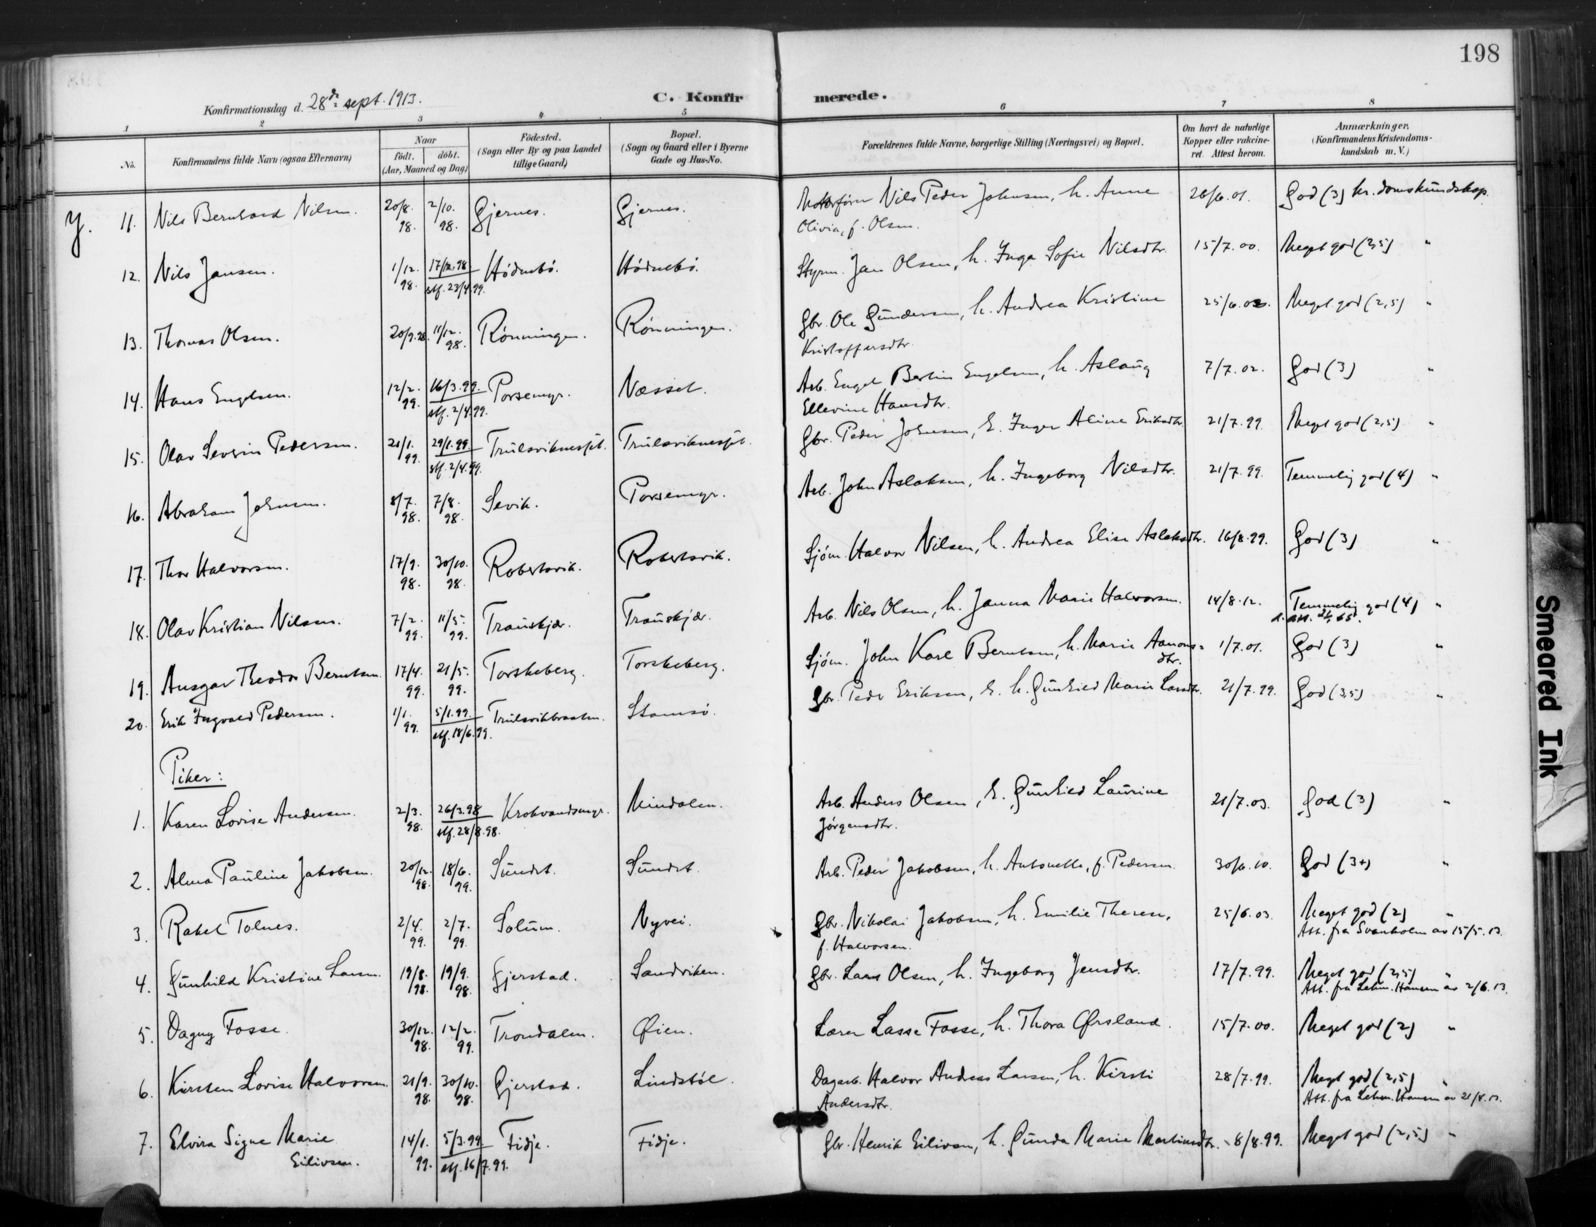 198
Konfirmationsdag d. 28de sept. 1913.
C. Konfirmerede.
1 2 3 4 5 6 7 8
No.
Konfirmandens fulde Navn (ogsaa Efternavn)
Naar
født. døbt.
(Aar, Maaned og Dag)
Fødested.
(Sogn eller By og paa Landet
tillige Gaard)
Bopæl.
(Sogn og Gaard eller i Byerne
Gade og Hus-No.
Forældrenes fulde Navne, borgerlige Stilling (Næringsvei) og Bopæl.
Om havt de naturlige
Kopper eller vakcine-
ret. Attest herom.
Anmærkninger.
(Konfirmandens Kristendoms-
kundskab m. V.)
11. Nils Bernhard Nilsen. 20/8. 98. 2/10. 98. Gjernes. Gjernes. Nils Peder Johnsen, h. Anne 28/6.01. God (3) kr.domskundskap.
Olivia, f. Olsen.
12. Nils Jansen. 1/12. 98. 17/12.98 stf. 23/4.99. Hødnebø. Hødnebø. Styrm. Jan Olsen, h. Inga Sofie Nilsdtr. 15/7.00. Meget god (2,5) "
13. Thomas Olsen. 20/9.98. 11/12. 98. Rønningen. Rønningen. Gbr. Ole Gundersen, h. Andrea Kristine 25/6.03. Meget god (2,5) "
Kristoffersdtr.
14. Hans Engelsen. 12/2. 99. 16/3.99. stf. 2/4.99. Porsemyr. Næsset. Arb. Engel Bertin Engelsen, h. Aslaug 7/7.02. God (3) "
Ellevine Hansdtr.
15. Olav Severin Pedersen. 21/1. 99. 29/1.99 stf. 2/4.99. Trulsviknesset. Trulsviknesset. Gbr. Peder Johnsen, E. Inger Aline Eriksdtr. 21/7.99. Meget god (2,5) "
16. Abraham Johnsen. 8/7. 98. 7/8. 98. Sevik. Porsemyr. Arb. John Aslaksen, h. Ingeborg Nilsdtr. 21/7.99. Temmelig god (4) "
17. Thor Halvorsen. 17/9. 98. 30/10. 98. Robertsvik. Robertsvik. Sjøm. Halvor Nilsen, h. Andrea Elise Aslaksdtr. 16/8.99. God (3) "
18. Olav Kristian Nilsen. 7/2. 99. 11/5. 99. Trauskjær. Trauskjær. Arb. Nils Olsen, h. Janna Marie Halvorsen. 14/8.12. Temmelig god (4) "
19. Ansgar Theodor Berntsen 17/4. 99. 21/5. 99. Torskeberg. Torskeberg. Sjøm. John Karl Berntsen, h. Marie Aanons=
dtr. 1/7.01. God (3) "
20. Erik Ingvald Pedersen. 1/1. 99. 5/1.99. stf. 18/6.99. Trulsvikbraaten. Stamsø. Gbr. Peder Eriksen, E. h. Gunhild Marie Larsdtr. 21/7.99. God (3,5) "
Piker:
1. Karen Lovise Andersen. 2/3. 98. 26/3.98 stf. 28/8.98. Krokvandsmyr. Mindalen. Arb. Anders Olsen, E. Gunhild Laurine 21/7.03. God (3) "
Jørgensdtr.
2. Alma Pauline Jakobsen. 20/12. 98. 18/6. 99. Sundet. Sundet. Arb. Peder Jakobsen, h. Antonette, f. Pedersen 30/6.10. God (3+) "
3. Rakel Tolnes. 2/4. 99. 2/7. 99. Solum. Nyvei. Gbr. Nikolai Jakobsen, h. Emilie Therese, 25/6.03. Meget god (2) "
f. Halvorsen. Att. fra Svanholm av 15/5.13.
4. Gunhild Kristine Larsen. 19/8. 98. 19/9. 98. Gjerstad. Sandviken. Gbr. Lars Olsen, h. Ingeborg Jensdtr. 17/7.99. Meget god (2,5) "
Att. fra Lehm. Hansen av 2/6.13.
5. Dagny Fosse. 30/12. 98. 12/2. 99. Trondalen. Øien. Lærer Lasse Fosse, h. Thora Ørsland. 15/7.00. Meget god (2) "
6. Kirsten Lovise Halvorsen. 21/9. 98. 30/10. 98. Gjerstad. Lindstøl. Dagarb. Halvor Andreas Larsen, h. Kirsti 28/7.99. Meget god (2,5) "
Andersdtr. Att. fra Lehm. Hansen av 21/4.13.
7. Elvira Signe Marie 14/1. 99. 5/3.99 stf. 16/7.99. Fidje. Fidje. Gbr. Henrik Eilivsen, h. Gunda Marie Martinsdtr. 8/8.99. Meget god (2,5) "
Eilivsen.
Smeared Ink